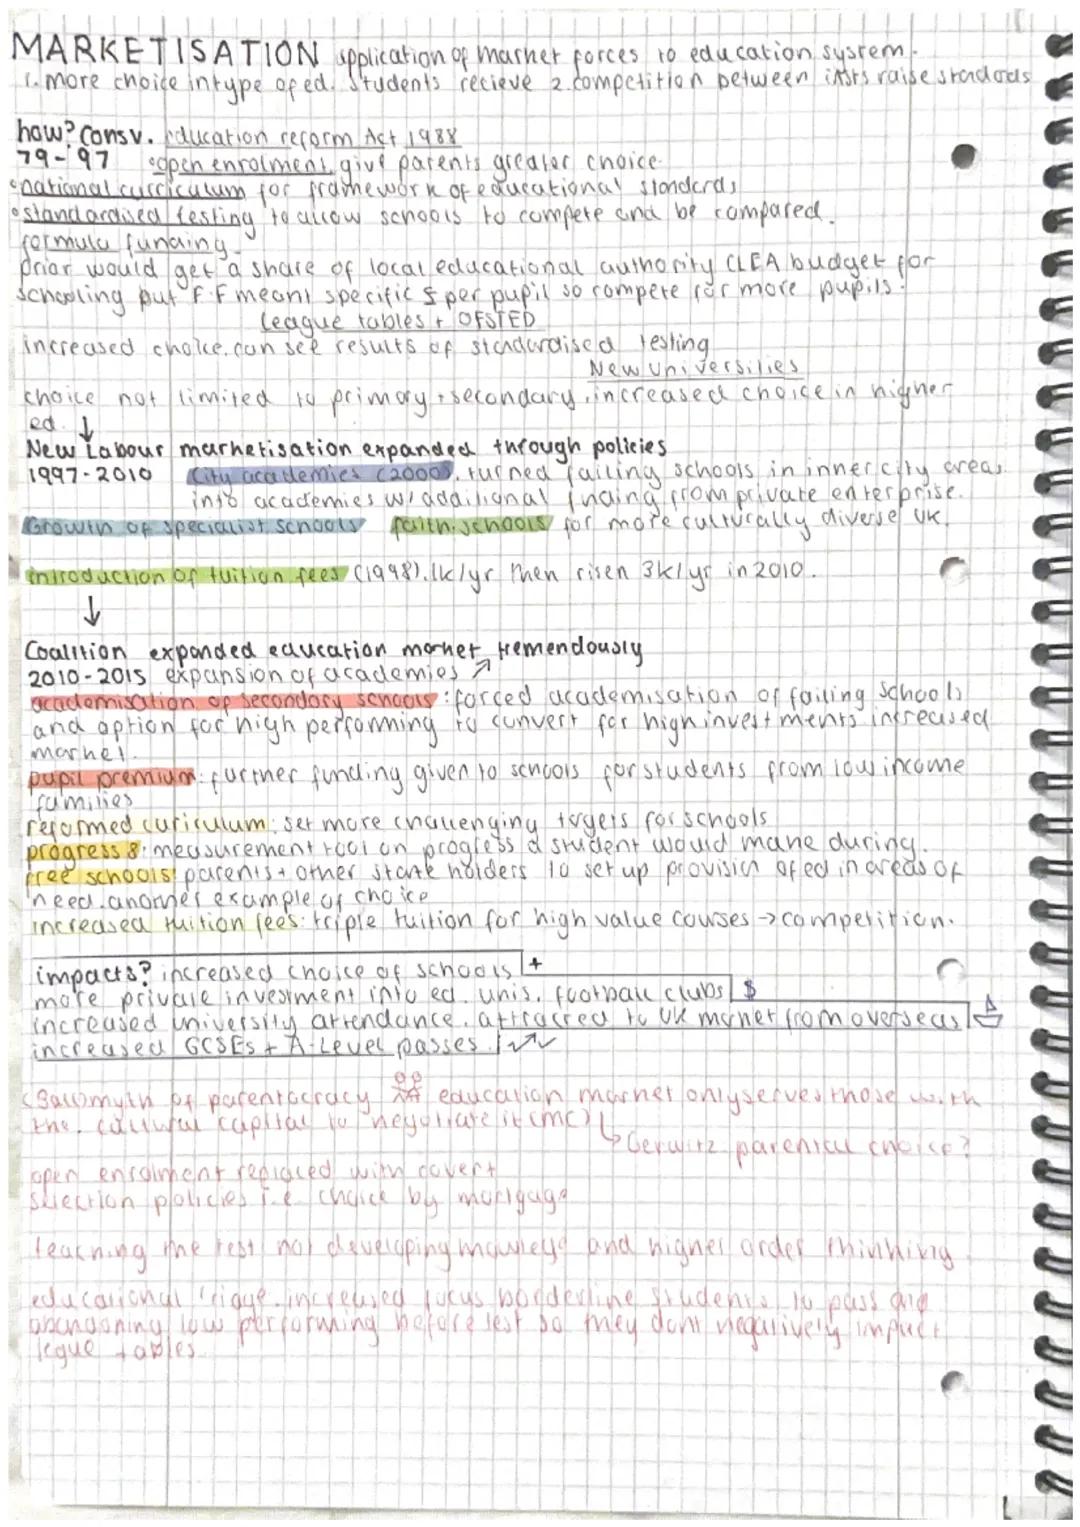 MARKETISATION application of market forces to education system.
1. more choice in type of ed. students recieve 2. competition between insts raise standards
how? Consv. education reform Act 1988
79-'97 •open enrolment, give parents greater choice.
•national curriculum for framework of educational standards
•standardised testing to allow schools to compete and be compared.
formula funding.
prior would get a share of local educational authority (LEA budget for
schooling but F.F meant specific £ per pupil so compete for more pupils.
league tables + OFSTED
increased choice. can see results of standardised testing
New Universities
choice not limited to primary + secondary, increased choice in higher
ed. ↓
New Labour marketisation expanded through policies
1997-2010 City academies (2000). turned failing schools in inner city areas
into academies w/ additional funding from private enterprise.
Growth of specialist schools faith schools for more culturally diverse UK.
introduction of tuition fees (1998). 1k/yr then risen 3k/yr in 2010.
↓
Coalition expanded education market tremendously
2010-2015 expansion of academies ↗
academisation of secondary schools: forced academisation of failing schools
and option for high performing to convert for high investments increased
market.
pupil premium: further funding given to schools for students from low income
families
reformed curiculum: set more challenging targets for schools
progress 8: measurement tool on progress a student would make during.
free schools: parents + other stake holders to set up provision of ed in areas of
need. another example of choice
increased tuition fees: triple tuition for high value courses → competition.
impacts? increased choice of schools +
more private investment into ed. unis. football clubs $
increased university attendance. attracted to UK market from overseas
increased GCSEs + A-Level passes.
myth of parentocracy education market only serves those with
the cultural capital to negotiate it (mc)
↳ Gerwitz parental choice?
open enrolment replaced with covert
selection policies i.e. choice by mortgage
teaching the test not developing knowledge and higher order thinking
educational triage. increased focus borderline students to pass and
abandoning low performing before test so they dont negatively impact
legue tables.